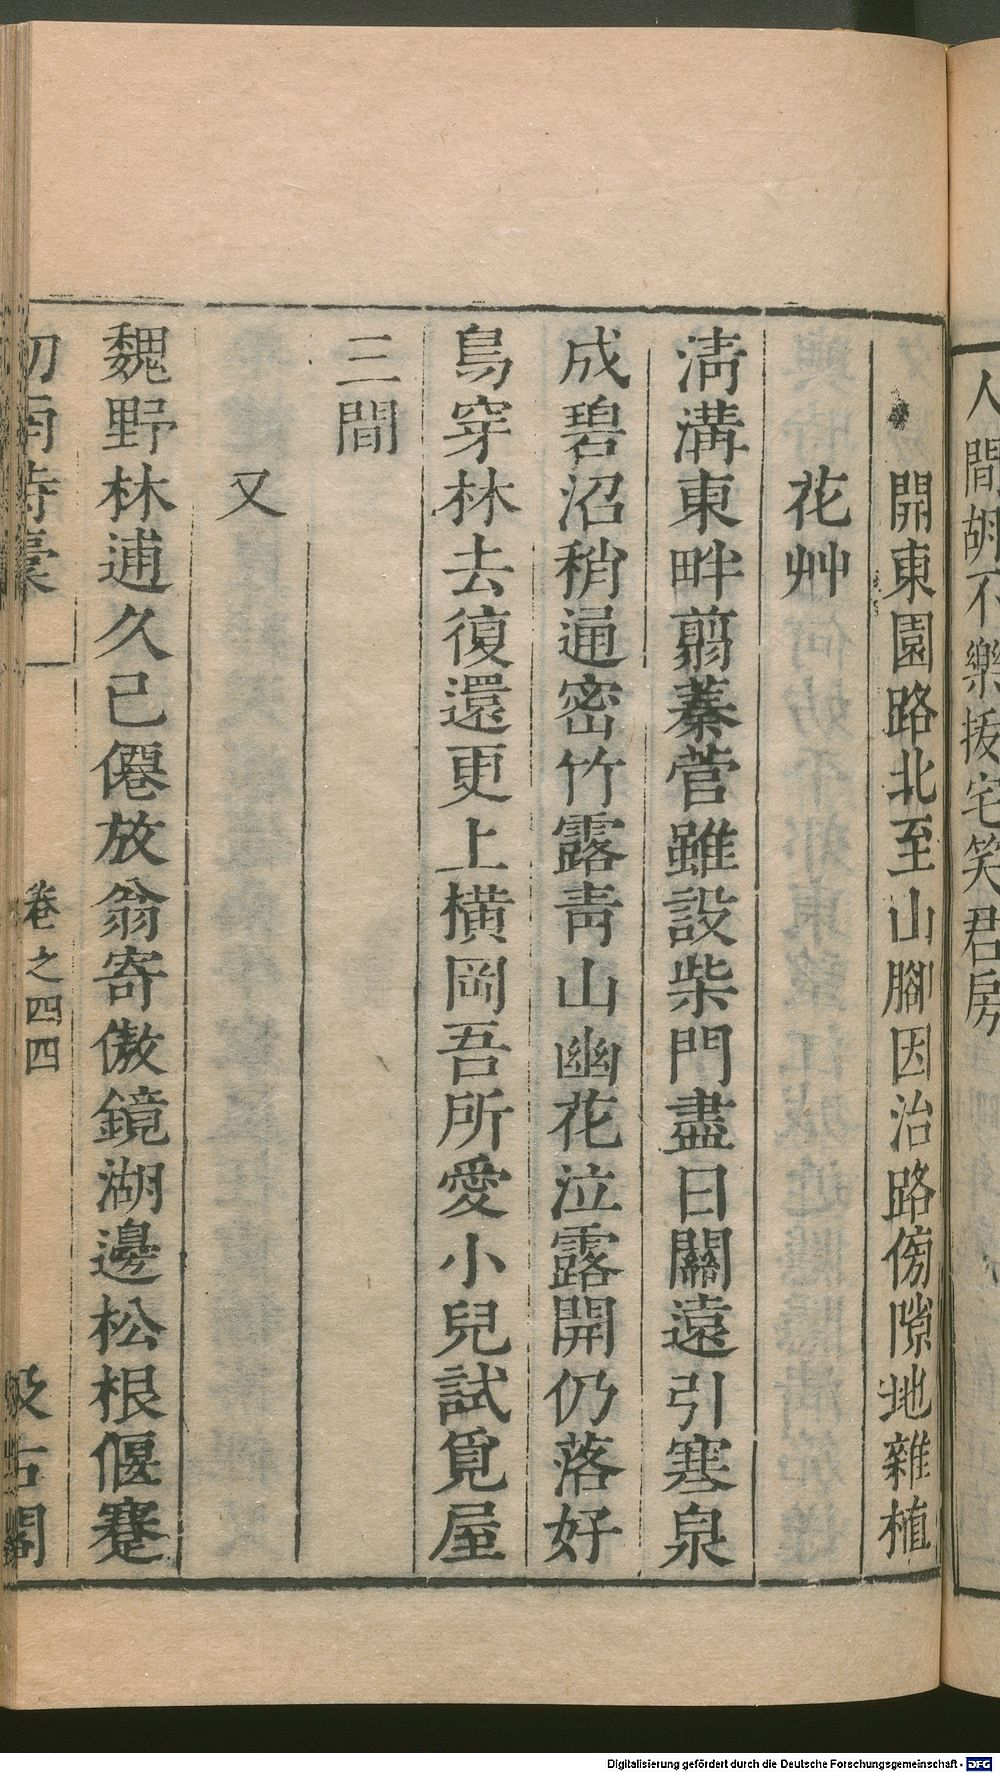 人間胡不樂拔宅笑君房
開東園路北至山腳因治路傍隙地雜植
花艸
淸溝東畔翦蓁菅雖設柴門盡日關遠引寒泉
成碧沼稍通密竹露靑山幽花泣露開仍落好
鳥穿林去復還更上橫岡吾所愛小兒試覓屋
三間
又
魏野林逋久已僊放翁寄傲鏡湖邊松根偃蹇
劒南詩稾 卷之四四 汲古閣
Digitalisierung gefördert durch die Deutsche Forschungsgemeinschaft - DFG